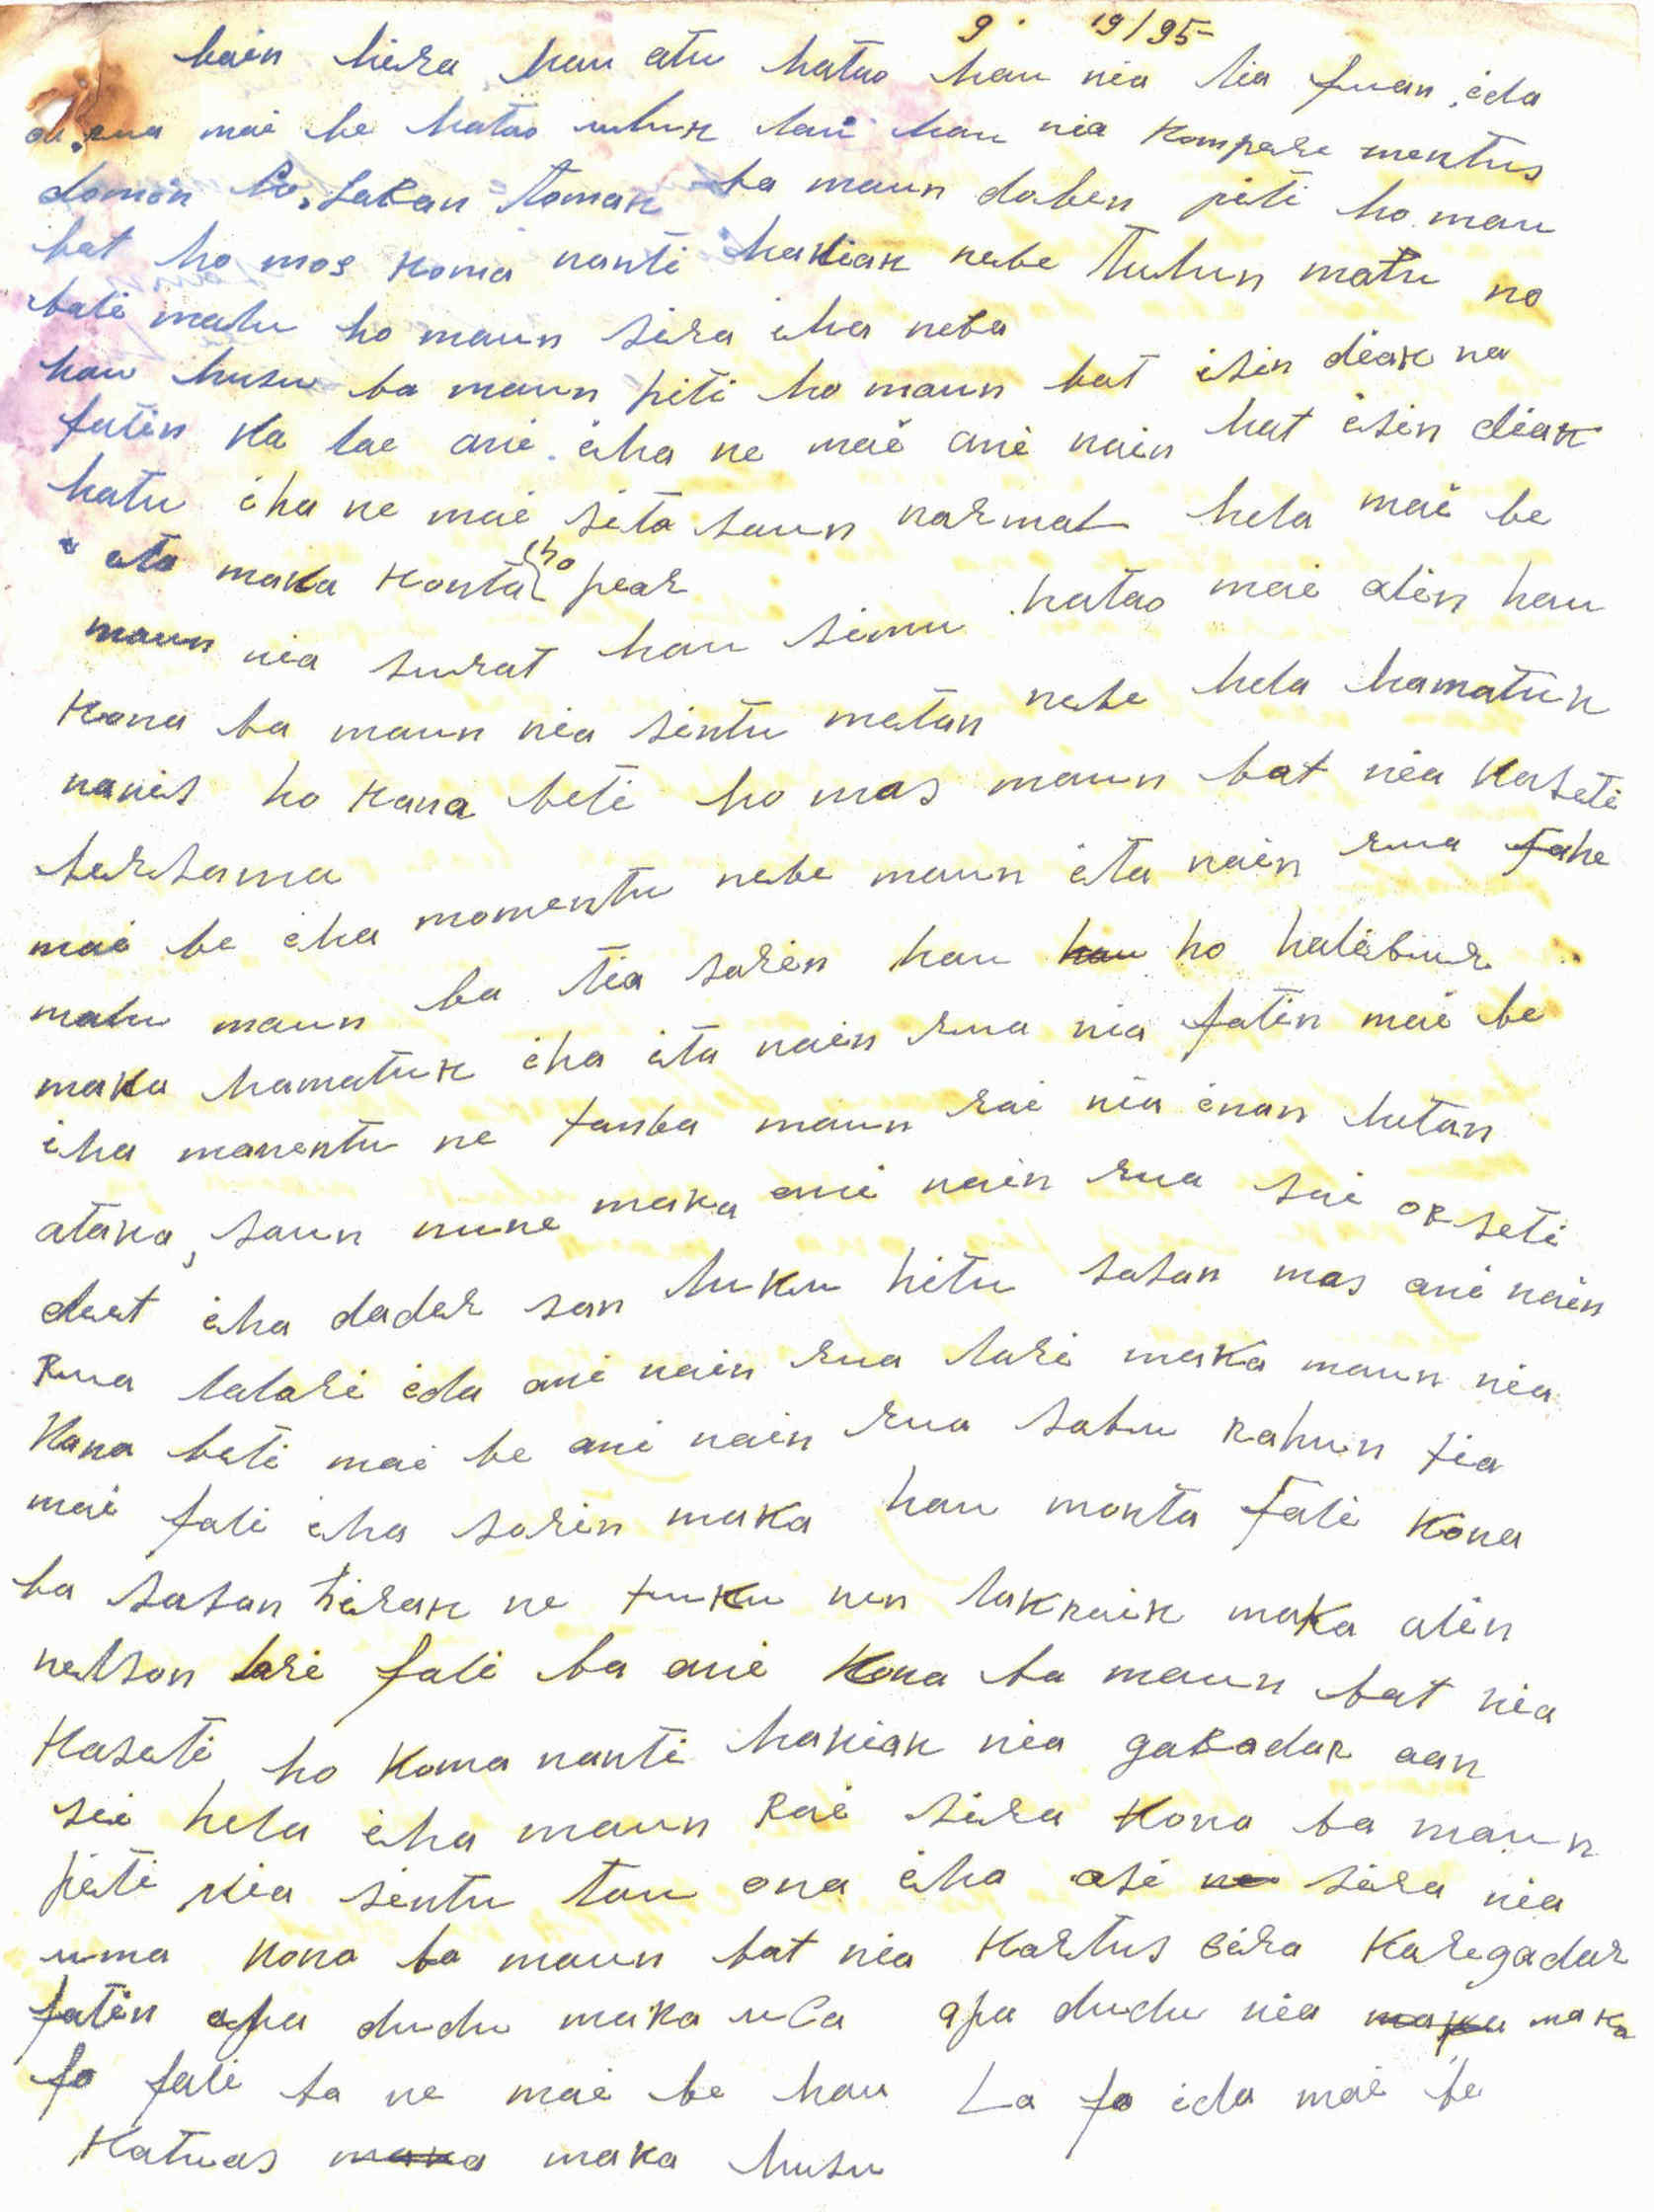 9. 19/95
bain hira hau atu hatao hau nia lia fuan ida
rua mai be hatao uluk lai hau nia kompere mentus
domin bo, Laran Toman ba maun doben piti ho maun
bat ho mos koma nanti hakiak nebe Tulun matu no
bali malu ho maun sira iha neba
hau husu ba maun piti ho maun bat isin diak na
fatin ka lae ami iha ne mai ami nain hat isin diak
hatu iha ne mai sita saun narmal hela mai be
ita maka konta ho pear
maun nia surat hau simu hatao mai alin hau
kona ba maun nia sintu metan nebe hela hamatuk
nanis ho kana beti ho mas maun bat nia kaseti
bersama
mai be iha momentu nebe maun ita nain rua fahe
malu maun ba tia sorin hau hau ho halibur
maka hamatuk iha ita nain rua nia fatin mai be
iha manentu ne tanba maun rai nia inan hetan
ataka, saun nune maka ami nain rua sai or seti
deet iha dader san huku hitu sasan mas ami nain
Rua lalari ida ami nain rua lari maka maun nia
Kana beti mai be ami nain rua sabu rahun tia
mai fali iha sorin maka hau monta fali kona
ba sasan hirak ne tuku nen lakraik maka alin
nelson lari fali ba ami kona ba maun bat nia
Kaseti ho koma nanti hakiak nia gabadar aan
sei hela iha maun Rai sira kona ba maun
piti nia sintu tau ona iha asi ne sira nia
uma kona ba maun bat nia Kartus sira Karegadar
fatin apa dudu maka ula apa dudu nia maka maka
fo fali ba ne mai be hau La fo ida mai be
Katuas maka maka husu